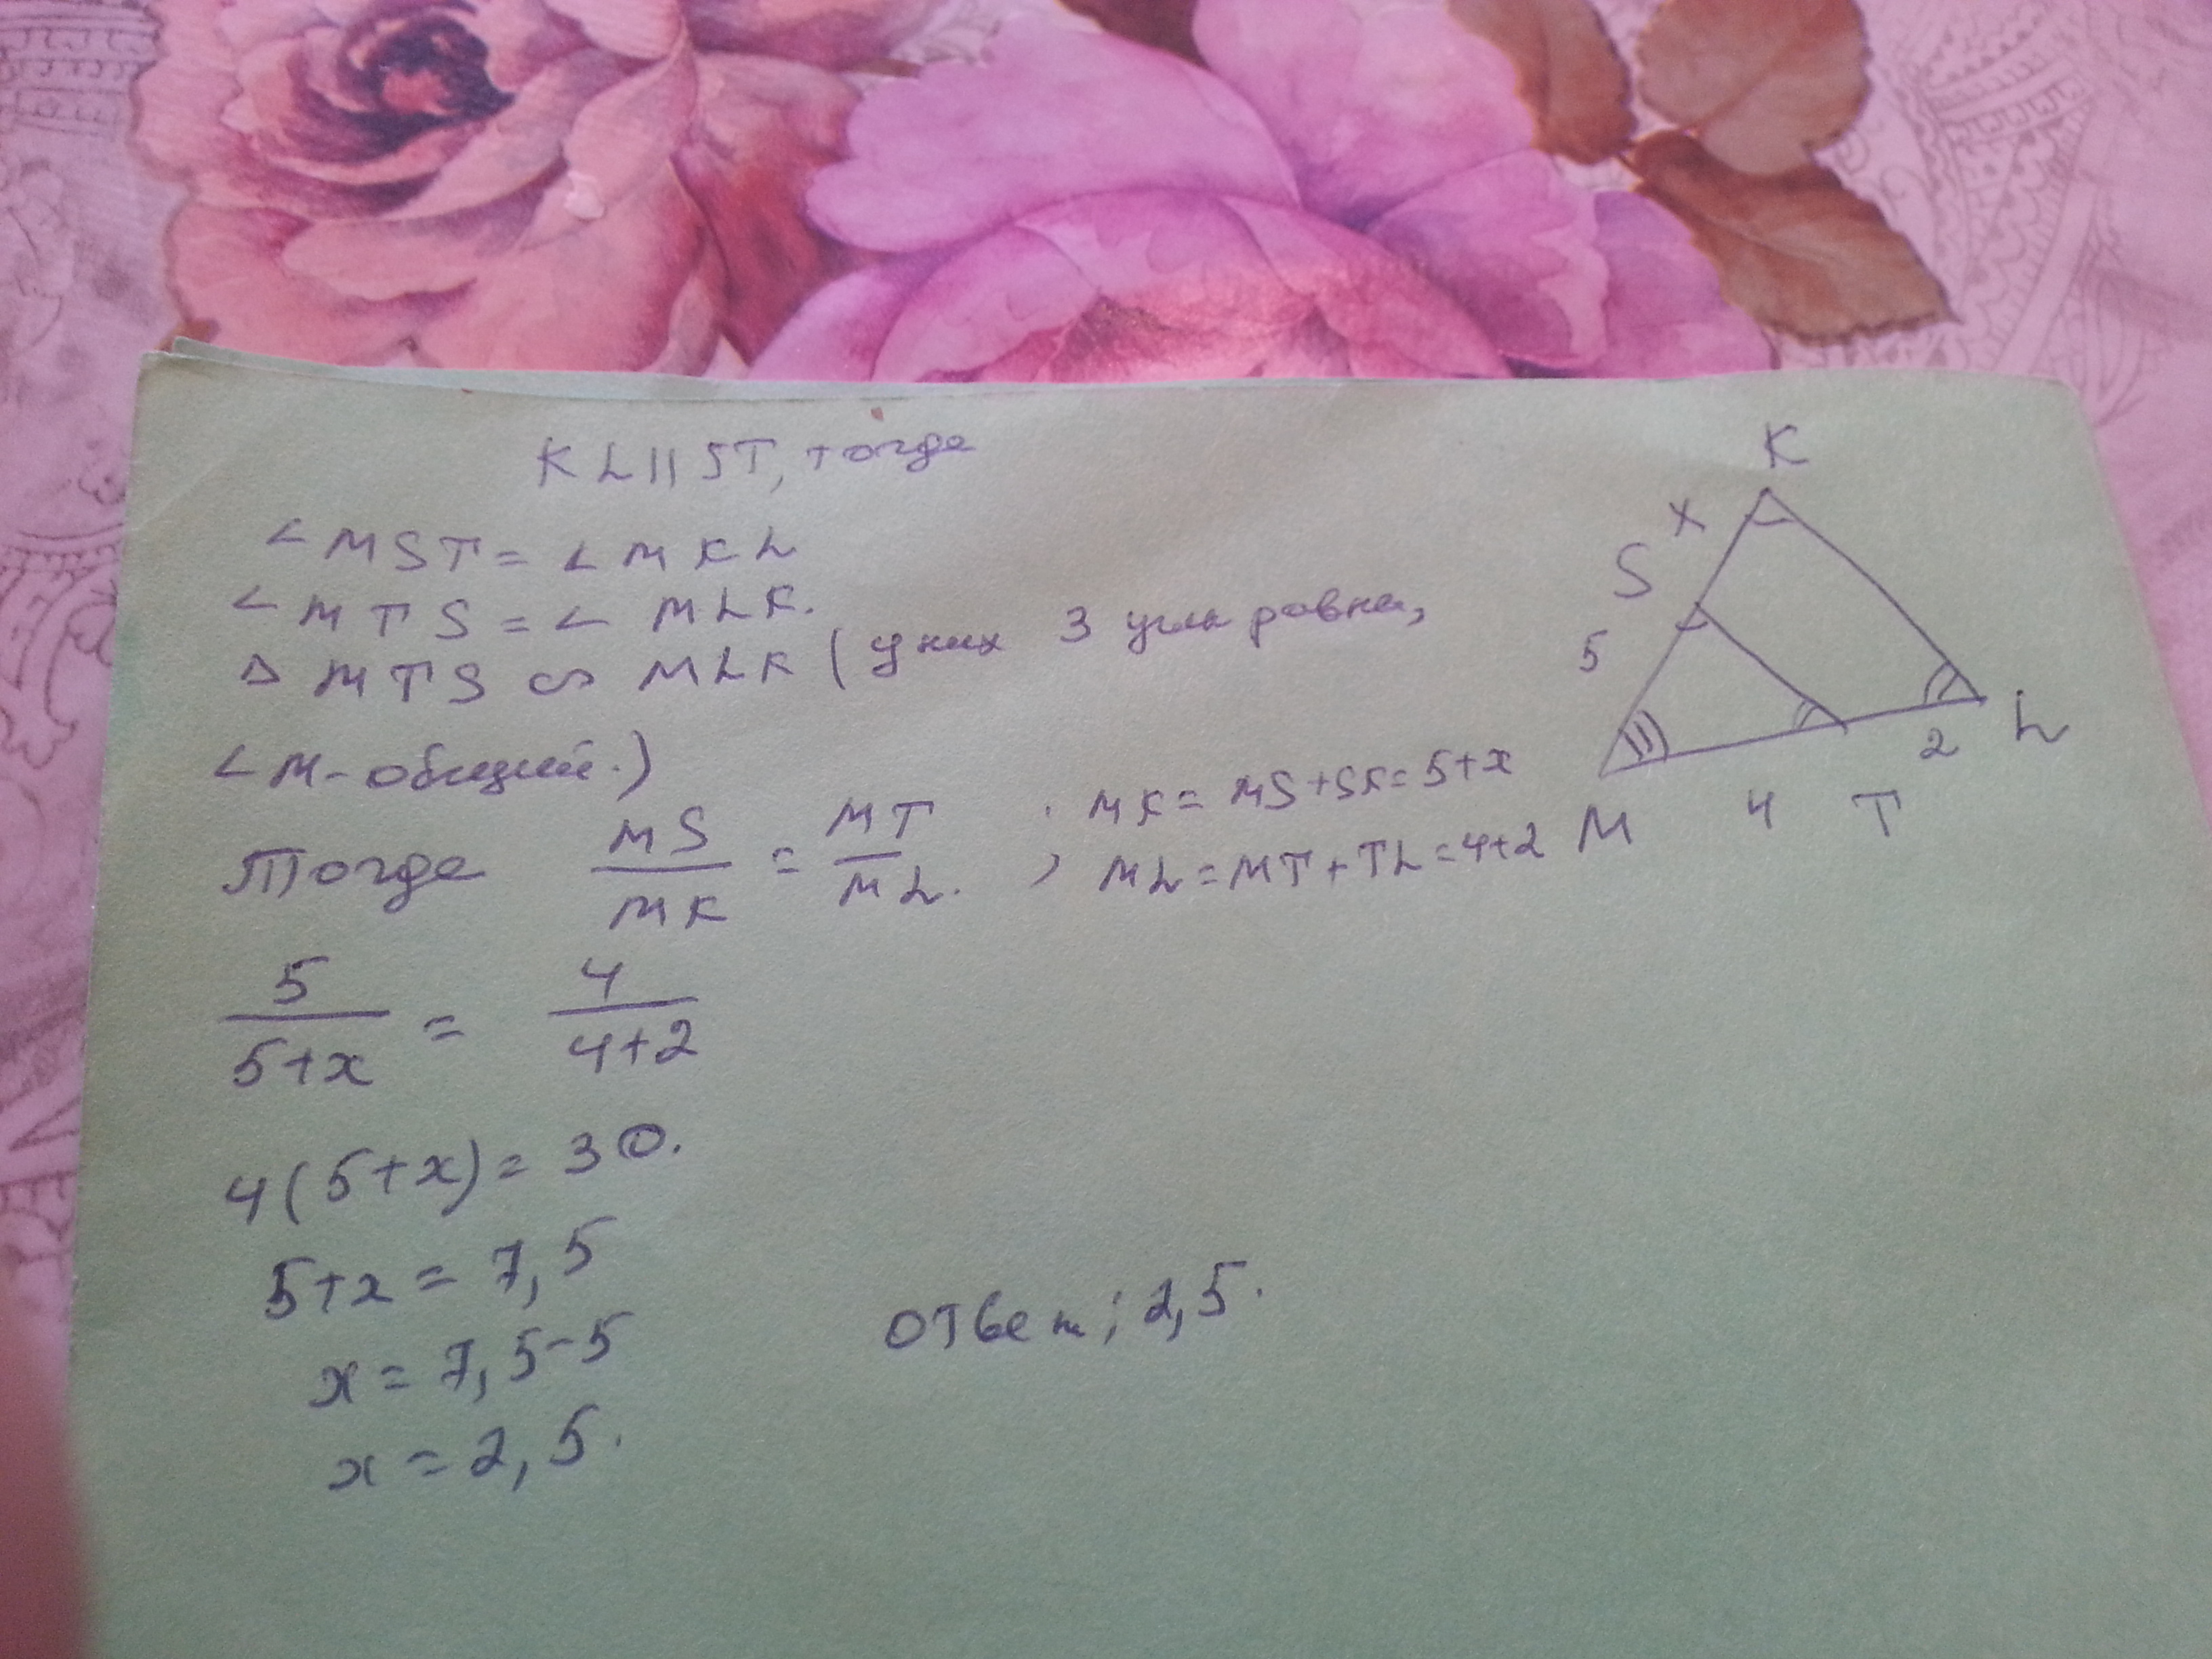 KL||ST, тогда
∠MST = ∠MKL
∠MTS = ∠MLK.
Δ MTS ∾ MLK (у них 3 угла равны,
∠M - общий.)
Тогда MS/MK = MT/ML. ; MK = MS+SK = 5+x
ML = MT+TL = 4+2
5/(5+x) = 4/(4+2)
4(5+x) = 30.
5+x = 7,5
x = 7,5-5
x = 2,5.
ответ; 2,5.
K
x
S
5
M
4
T
2
L